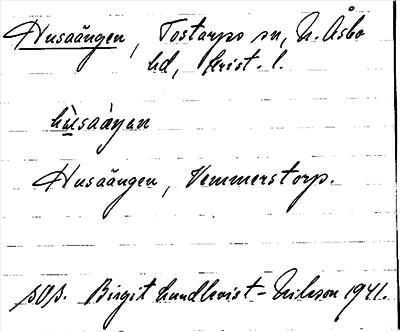 Husaängen, Tostarps sn, N. Åsbo
hd, Krist. l.
hùsaàŋan
Husaängen, Vemmerstorp.
sOp. Birgit Lundkvist-Nilsson 1941.